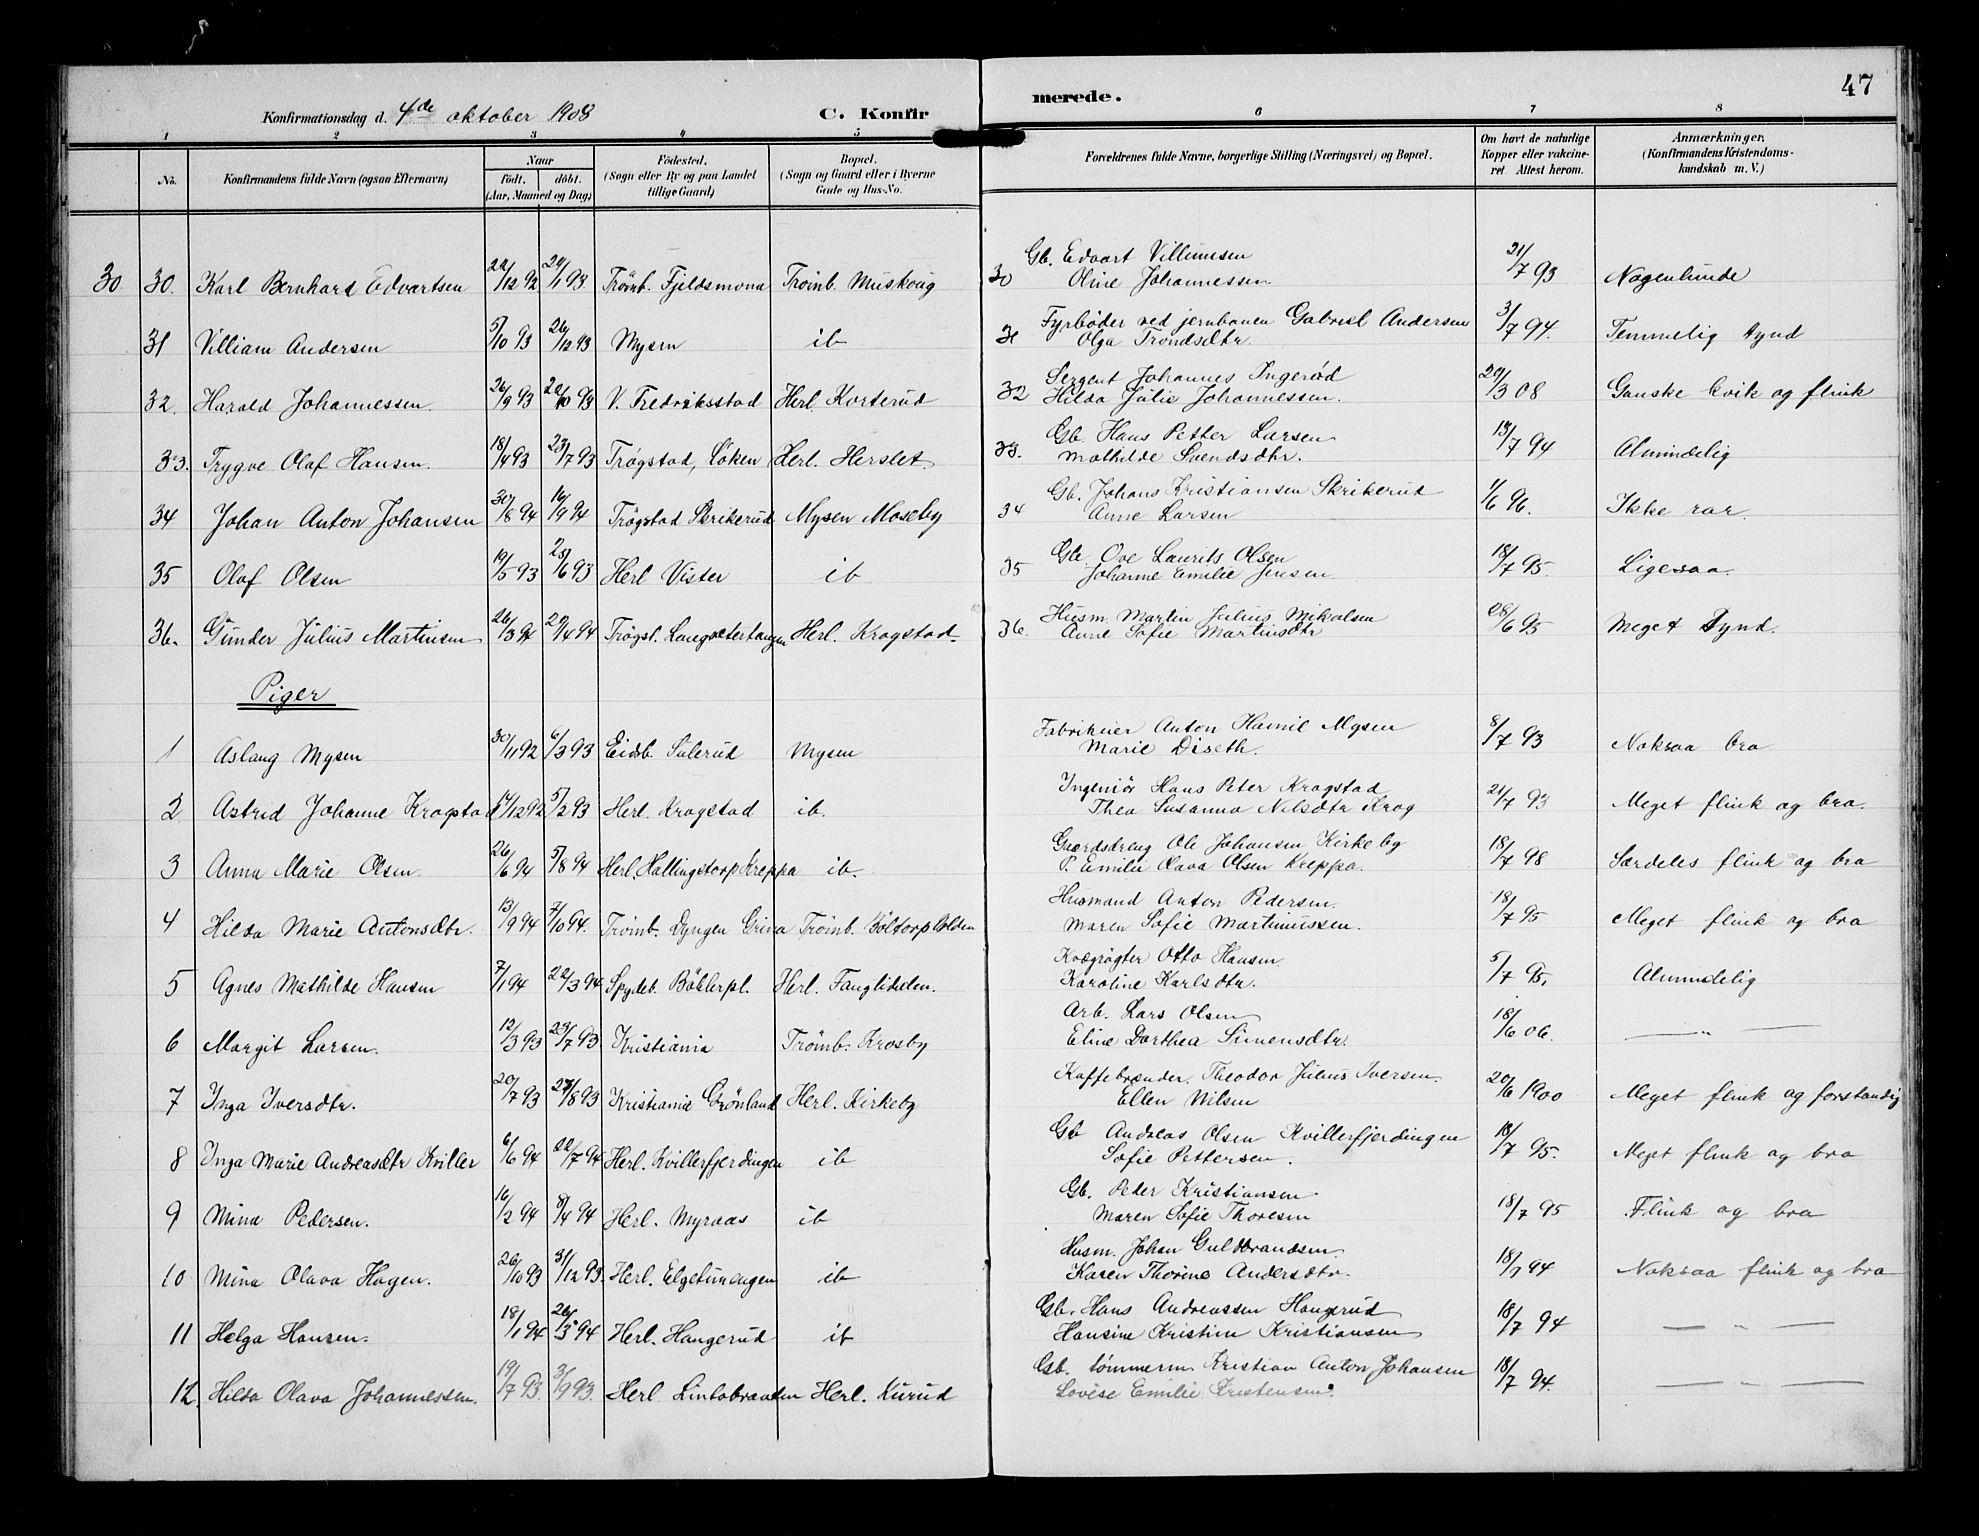 47
Konfirmationsdag d. 4de oktober 1908 C. Konfir merede.
1 2 3 4 5 6 7 8
No. Konfirmandens fulde Navn (ogsaa Efternavn) Naar födt. döbt. (Aar, Maaned og Dag) Födested. (Sogn eller By og paa Landet tillige Gaard) Bopæl. (Sogn og Gaard eller i Byerne Gade og Hus-No. Forældrenes fulde Navne, borgerlige Stilling (Næringsvei) og Bopæl. Om havt de naturlige Kopper eller vakcineret. Attest herom. Anmærkninger. (Konfirmandens Kristendomskundskab m. V.)
30 30. Karl Bernhard Edvartsen 22/12 92 24/1 93 Trömb. Fjeldsmona Trömb. Muskoug 30 Gb. Edvart Villumsen 21/7 93 Nogenlunde
Oline Johannessen
31 Villiam Andersen 5/10 93 26/12 93 Mysen ib 31 Fyrböder ved jernbanen Gabriel Andersen 3/7 94. Temmelig tynd
Olga Trondsdtr
32. Harald Johannessen. 26/9 93 22/10 93 V. Fredriksstad Herl. Korterud 32 Sergent Johannes Ingeröd 24/3 08 Ganske kvik og flink
Hilda Julie Johannessen.
33. Trygve Olaf Hansen. 18/4 93 23/7 93 Trögstad, Söken Herl. Herslet 33. Gb. Hans Petter Larsen 13/7 94 Almindelig
Mathilde Svendsdtr.
34 Johan Anton Johansen 30/8 94 16/9 94 Trögstad Skrikerud Mysen Moseby 34 Gb. Johans Kristiansen Skrikerud 1/6 96. Ikke rar.
Anne Larsen
35 Olaf Olsen 19/5 93 25/6 93 Herl Vister ib 35 Gb. Ove Laurits Olsen 18/7 95. Ligesaa.
Johanne Emilie Jensen
36. Gunder Julius Martinsen 26/3 94 29/4 94 Trögst. Langsæterhaugen Herl. Kragstad. 36. Husm. Martin Julius Mikalsen 28/6 95 Meget tynd.
Anne Sofie Martinsdtr
Piger
1 Aslaug Mysen 30/11 92 6/3 93 Eidsb. Sulerud Mysen Fabrikeier Anton Hamil Mysen 8/7 93 Noksaa bra
Marie Diseth.
2 Astrid Johanne Kragstad 14/12 92 5/2 93 Herl. Kragstad ib. Ingeniör Hans Peter Kragstad 21/7 93 Meget flink og bra.
Thea Susanna Nilsdtr Krog
3 Anna Marie Olsen. 26/6 94 5/8 94 Herl. Hallingstorp Kreppa ib. Gaardsdreng Ole Johansen Kirkeby 18/7 98 Særdeles flink og bra
P. Emilie Olava Olsen Kreppa.
4 Hilda Marie Antonsdtr. 13/9 94 7/10 94. Trömb. Dyngen Grina Trömb. Böltorp Holden Husmand Anton Pedersen 18/7 95 Meget flink og bra
Maren Sofie Martinussen.
5 Agnes Mathilde Hansen 7/1 94 22/3 94 Spydeb. Böhlerpl. Herl. Fanglidelen. Kvægrögter Otto Hansen 5/7 95. Almindelig
Karoline Karlsdtr.
6 Margit Larsen. 12/3 93 23/7 93 Kristiania Trömb. Krosby Arb. Lars Olsen 18/6 06. — " —
Eline Dorthea Simensdtr.
7 Inga Iversdtr. 20/7 93 27/8 93 Kristiania Grönland Herl. Kirkeby Kaffebrænder. Theodor Julius Iversen. 20/6 1900 Meget flink og forstandig
Ellen Nilsen
8 Inga Marie Andreasdtr Kviller 6/6 94 22/7 94 Herl. Kvillerfjerdingen ib Gb Andreas Olsen Kvillerfjerdingen 18/7 95. Meget flink og bra
Sofie Pettersen.
9 Mina Pedersen. 16/2 94 8/4 94 Herl. Myraas ib Gb. Peder Kristiansen 18/7 95 Flink og bra
Maren Sofie Thoresen
10 Mina Olava Hagen. 26/10 93 31/12 93. Herl. Elgetunengen ib Husm. Johan Guldbrandsen. 18/7 94 Noksaa flink og bra
Karen Thorine Andersdtr.
11 Helga Hansen. 18/1 94 26/3 94 Herl. Haugerud ib Gb. Hans Andreassen Haugerud 18/7 94 — " —
Hansine Kristine Kristiansen
12. Hilda Olava Johannessen. 19/7 93. 3/9 93. Herl Lintobraaten Herl. Kurud Gb. tömmerm. Kristian Anton Johansen 18/7 94. — " —
Lovise Emilie Kristensen.